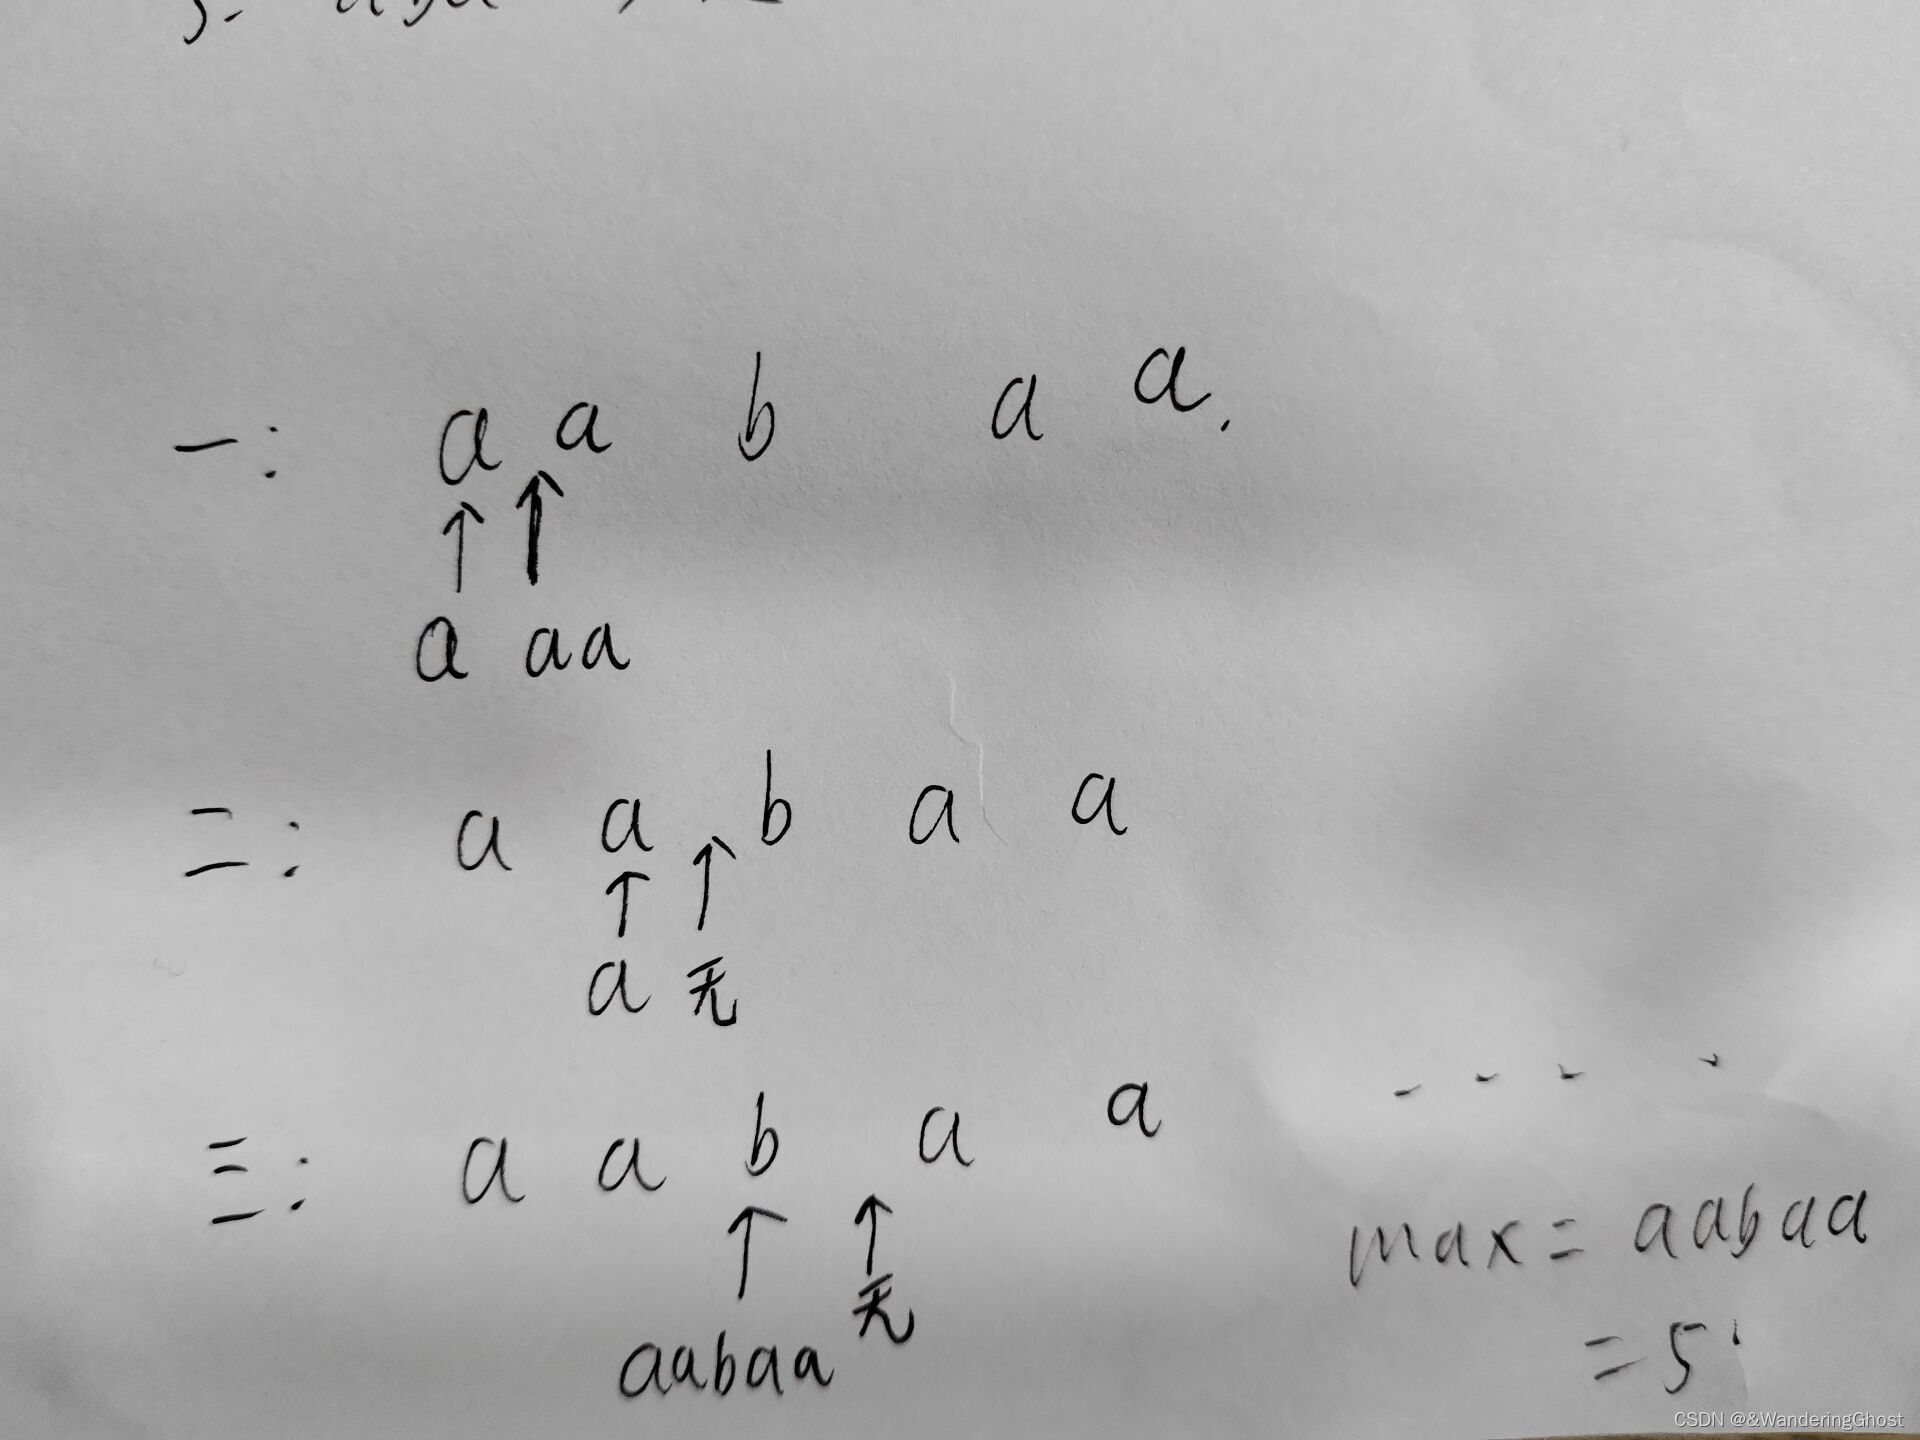 一: a a b a a.
a aa
二: a a b a a
a 无
三: a a b a a
aabaa 无
....
max = aabaa
= 5
CSDN @&WanderingGhost